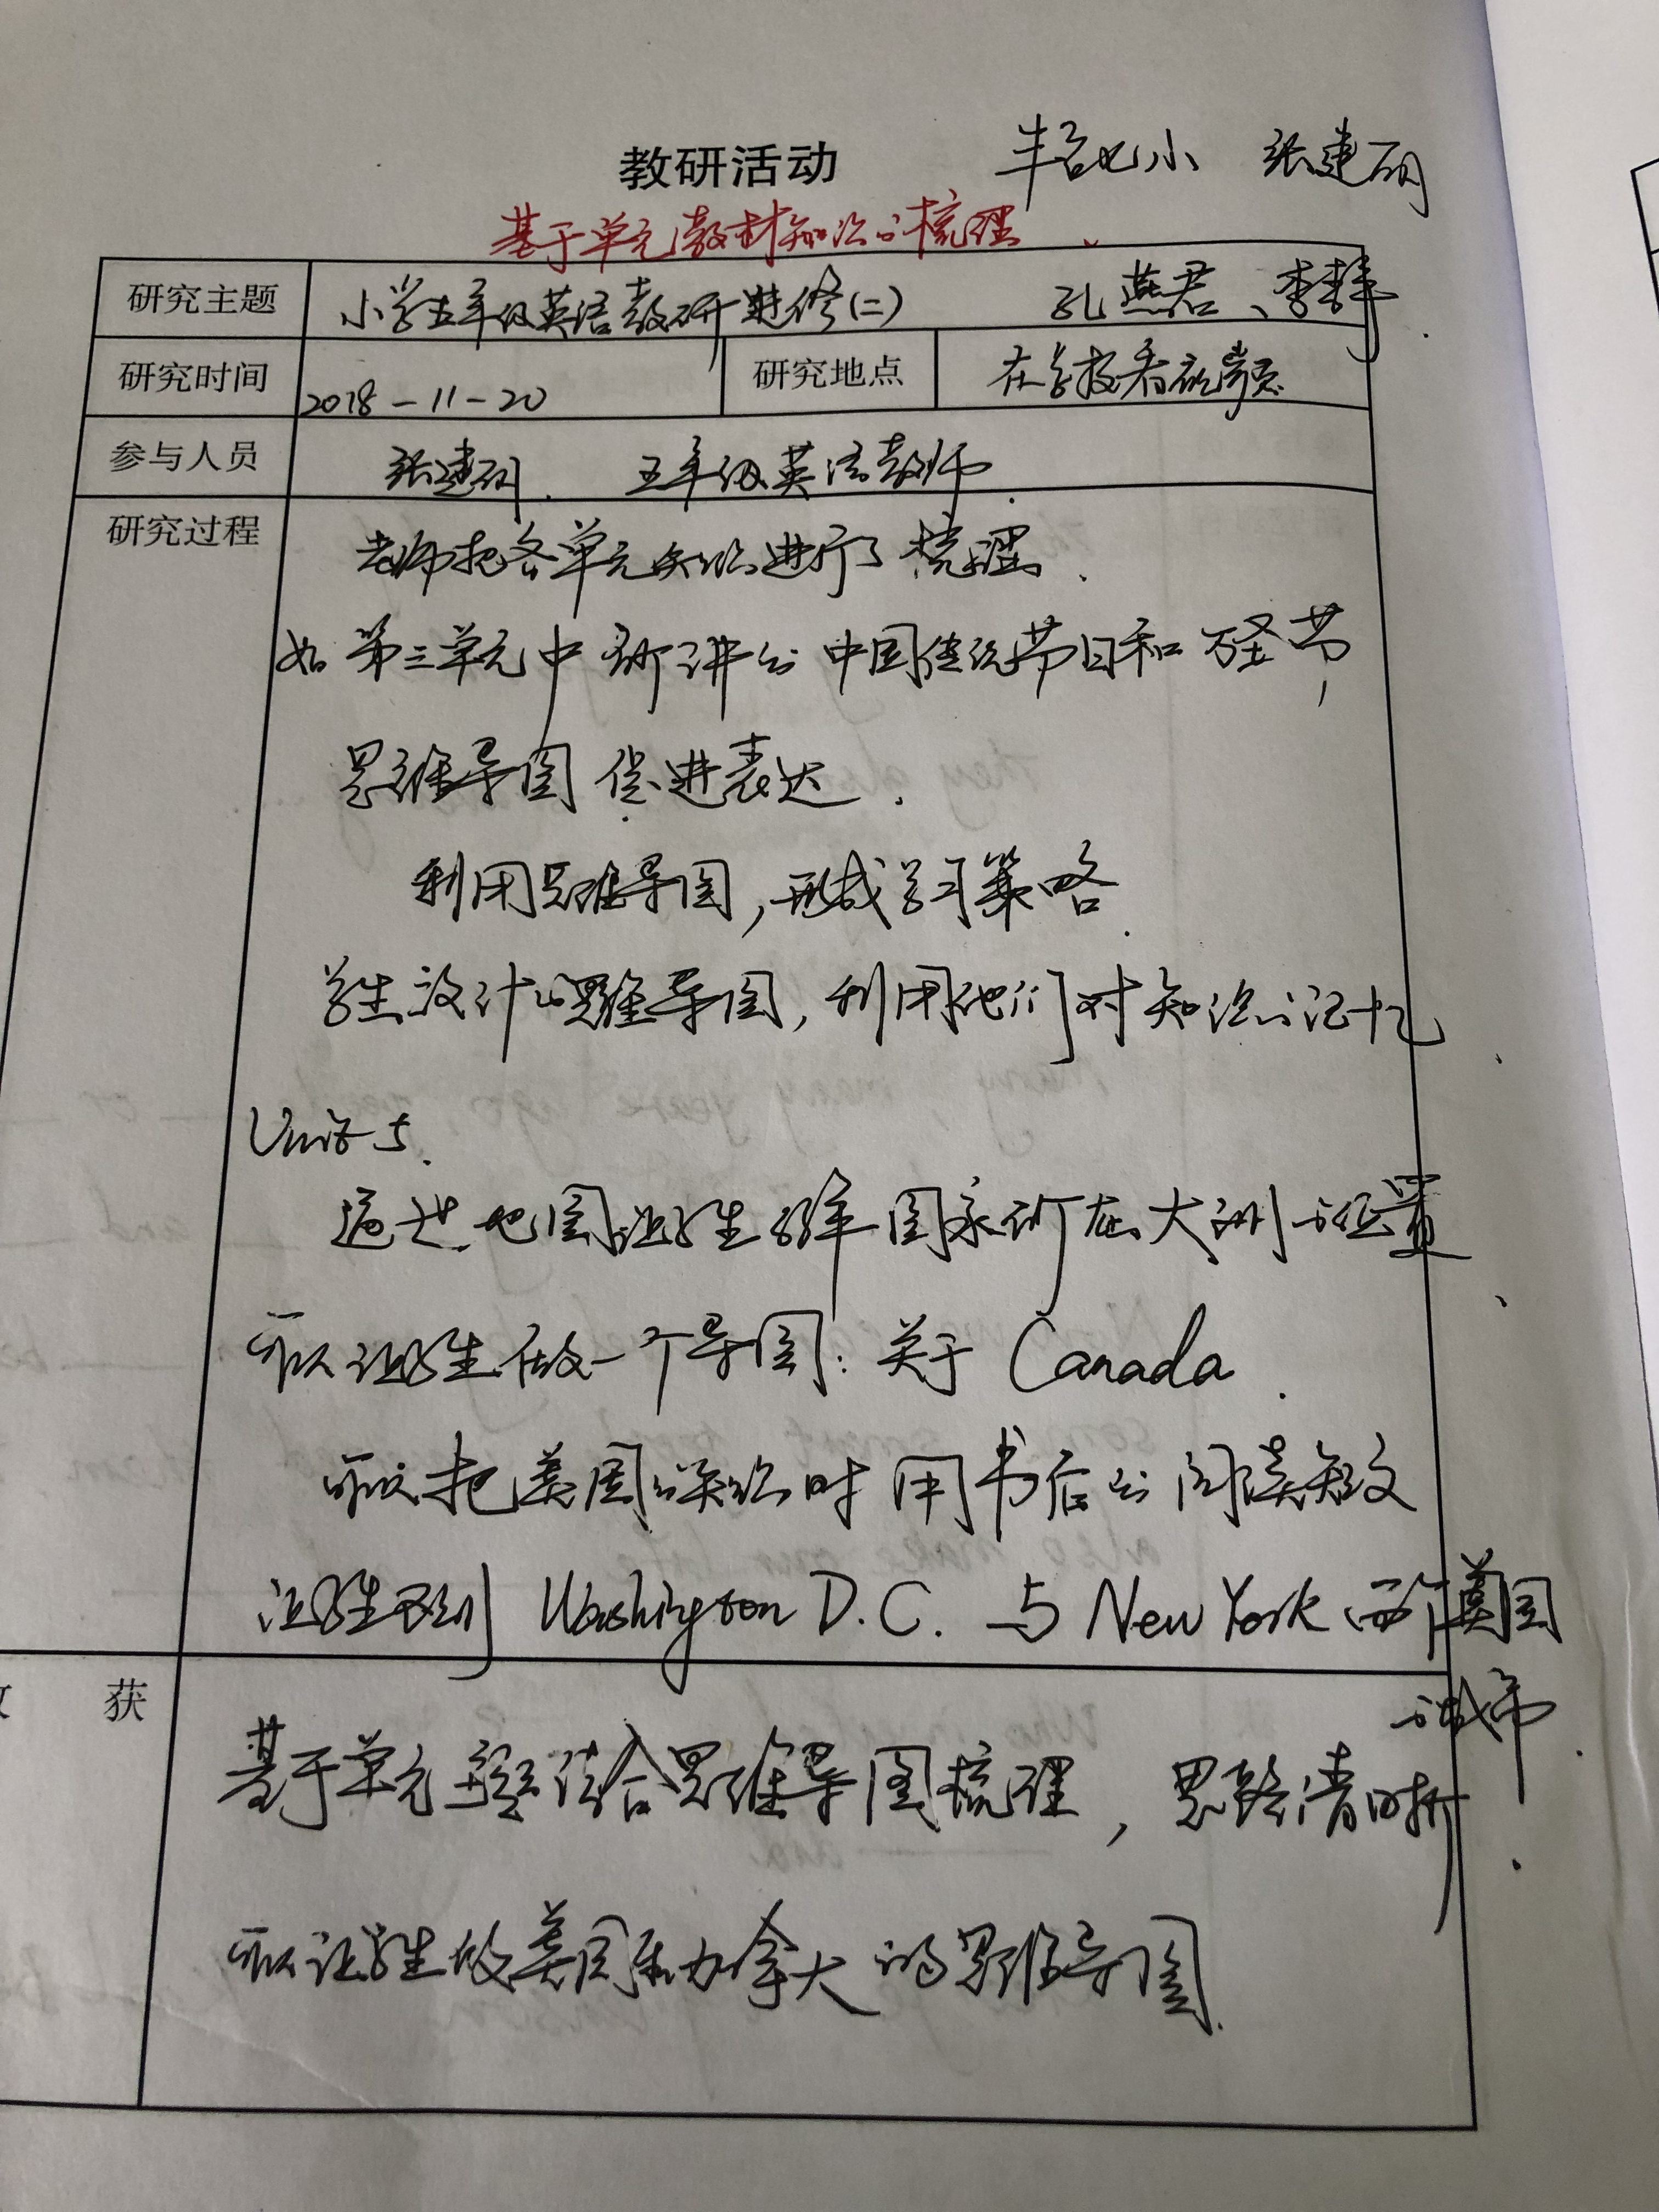 教研活动 丰台七小 张建硕
基于单元教材知识的梳理
研究主题 小学五年级英语教研进修(二) 孔燕君、李
研究时间 2018-11-20 研究地点 在学校看视频
参与人员 张建硕. 五年级英语教师.
研究过程 老师把各单元知识进行了梳理.
如第三单元中所讲的中国传统节日和万圣节,
思维导图促进表达.
利用思维导图,形成学习策略.
学生设计的思维导图,利用他们对知识的记忆
Unit 5.
通过地图让学生了解国家所在大洲的位置、
可以让学生做一个导图:关于Canada.
可以把美国的知识时用书后的阅读短文
让学生区别Washington D.C.与New York两个美国
的城市.
获 基于单元 结合思维导图梳理,思路清晰.
可以让学生做美国和加拿大的思维导图.